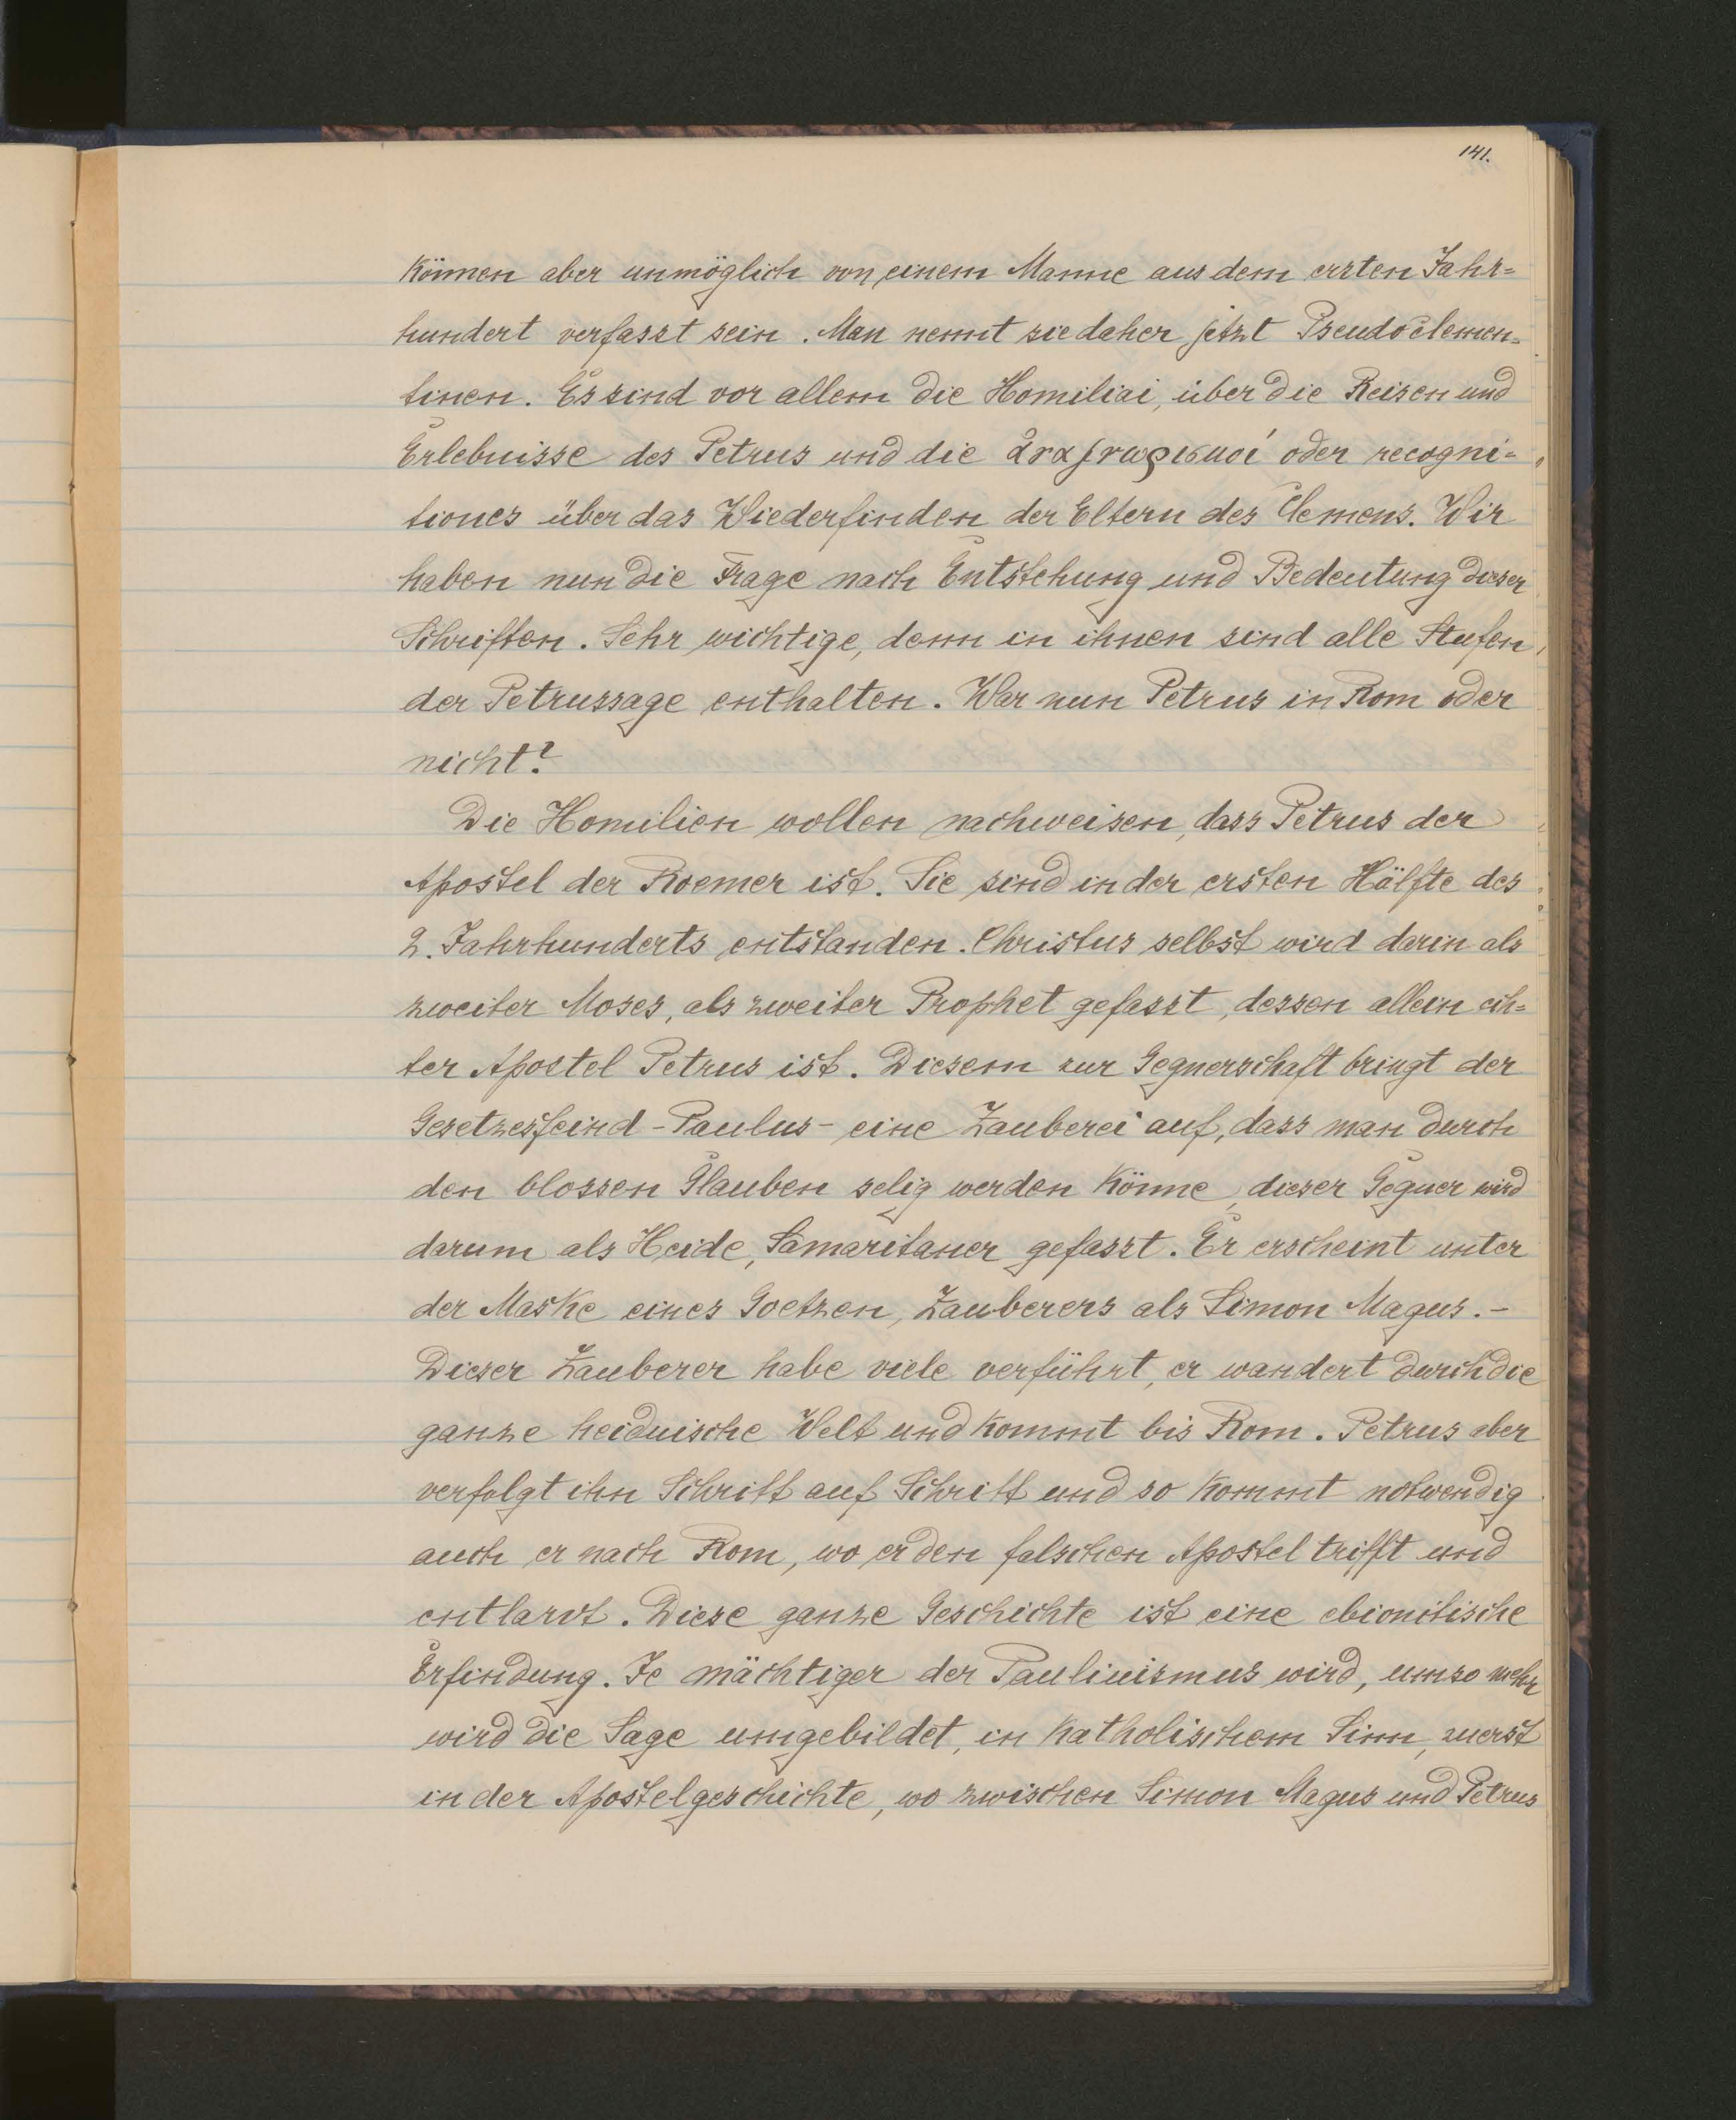 141.
können aber unmöglich von einem Manne aus dem ersten Jahr=
hundert verfasst sein. Man nennt sie daher jetzt Pseudoclemen=
tinen. Es sind vor allem die Homiliai, über die Reisen und
Erlebnisse des Petrus und die ἀναγνωρισμοί oder recogni=
tiones über das Wiederfinden der Eltern des Clemens. Wir
haben nun die Frage nach Entstehung und Bedeutung dieser
Schriften. Sehr wichtige, denn in ihnen sind alle Stufen
der Petrussage enthalten. War nun Petrus in Rom oder
nicht?
Die Homilien wollen nachweisen, dass Petrus der
Apostel der Roemer ist. Sie sind in der ersten Hälfte des
2. Jahrhunderts entstanden. Christus selbst wird darin als
zweiter Moses, als zweiter Prophet gefasst, dessen allein ech=
ter Apostel Petrus ist. Diesem zur Gegnerschaft bringt der
Gesetzesfeind - Paulus - eine Zauberei auf, dass man durch
den blossen Glauben selig werden könne, dieser Gegner wird
darum als Heide, Samaritaner gefasst. Er erscheint unter
der Maske eines Goetzen, Zauberers als Simon Magus. -
Dieser Zauberer habe viele verführt, er wandert durch die
ganze heidnische Welt und kommt bis Rom. Petrus aber
verfolgt ihn Schritt auf Schritt und so kommt notwendig
auch er nach Rom, wo er den falschen Apostel trifft und
entlarvt. Diese ganze Geschichte ist eine ebionitische
Erfindung. Je mächtiger der Paulinismus wird, umso mehr
wird die Sage umgebildet, in katholischem Sinn, zuerst
in der Apostelgeschichte, wo zwischen Simon Magus und Petrus